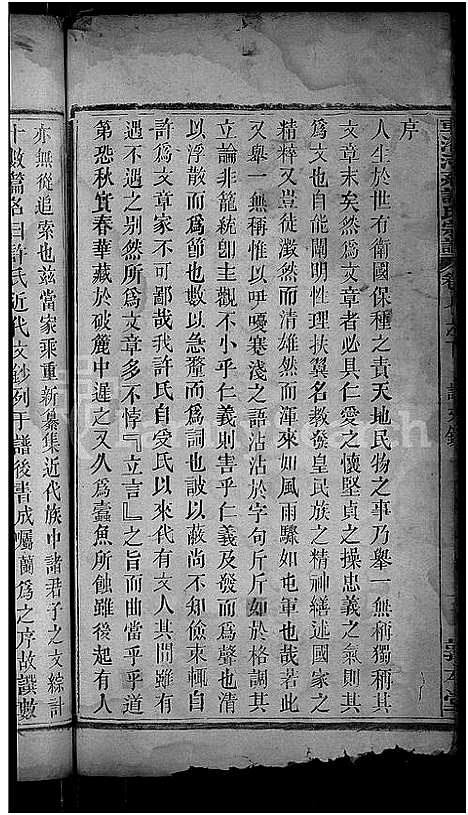 序
人生於世有衛國保種之責天地民物之事乃舉一無稱獨稱其
文章末矣然爲文章者必具仁愛之懷堅貞之操忠義之氣則其
爲文也自能闡明性理扶翼名教發皇民族之精神繕述國家之
精粹又豈徒雄然而清雄然而渾來如風雨驟如屯軍也哉若夫
又舉一無稱惟以咿嚘蹇淺之語沾沾於字句斤斤如於格調其
立論非籠統卽主觀不小乎仁義則害乎仁義及發而爲聲也清
以浮散而爲節也數以急鶩而爲詞也詖以蔽尚不知儉束輒自
許爲文章家不可鄙哉我許氏自受氏以來代有文人其間雖有
遇不遇之别然所爲文章多不悖『立言』之旨而曲當乎乎道
第恐秋實春華藏於破簏中遲之又久爲蠹魚所蝕雖後起有人
亦無從追索也茲當家乘重新纂集近代族中諸君子之文綜計
十數篇名曰許氏近代文鈔列于譜後書成囑蘭爲之序故譔數